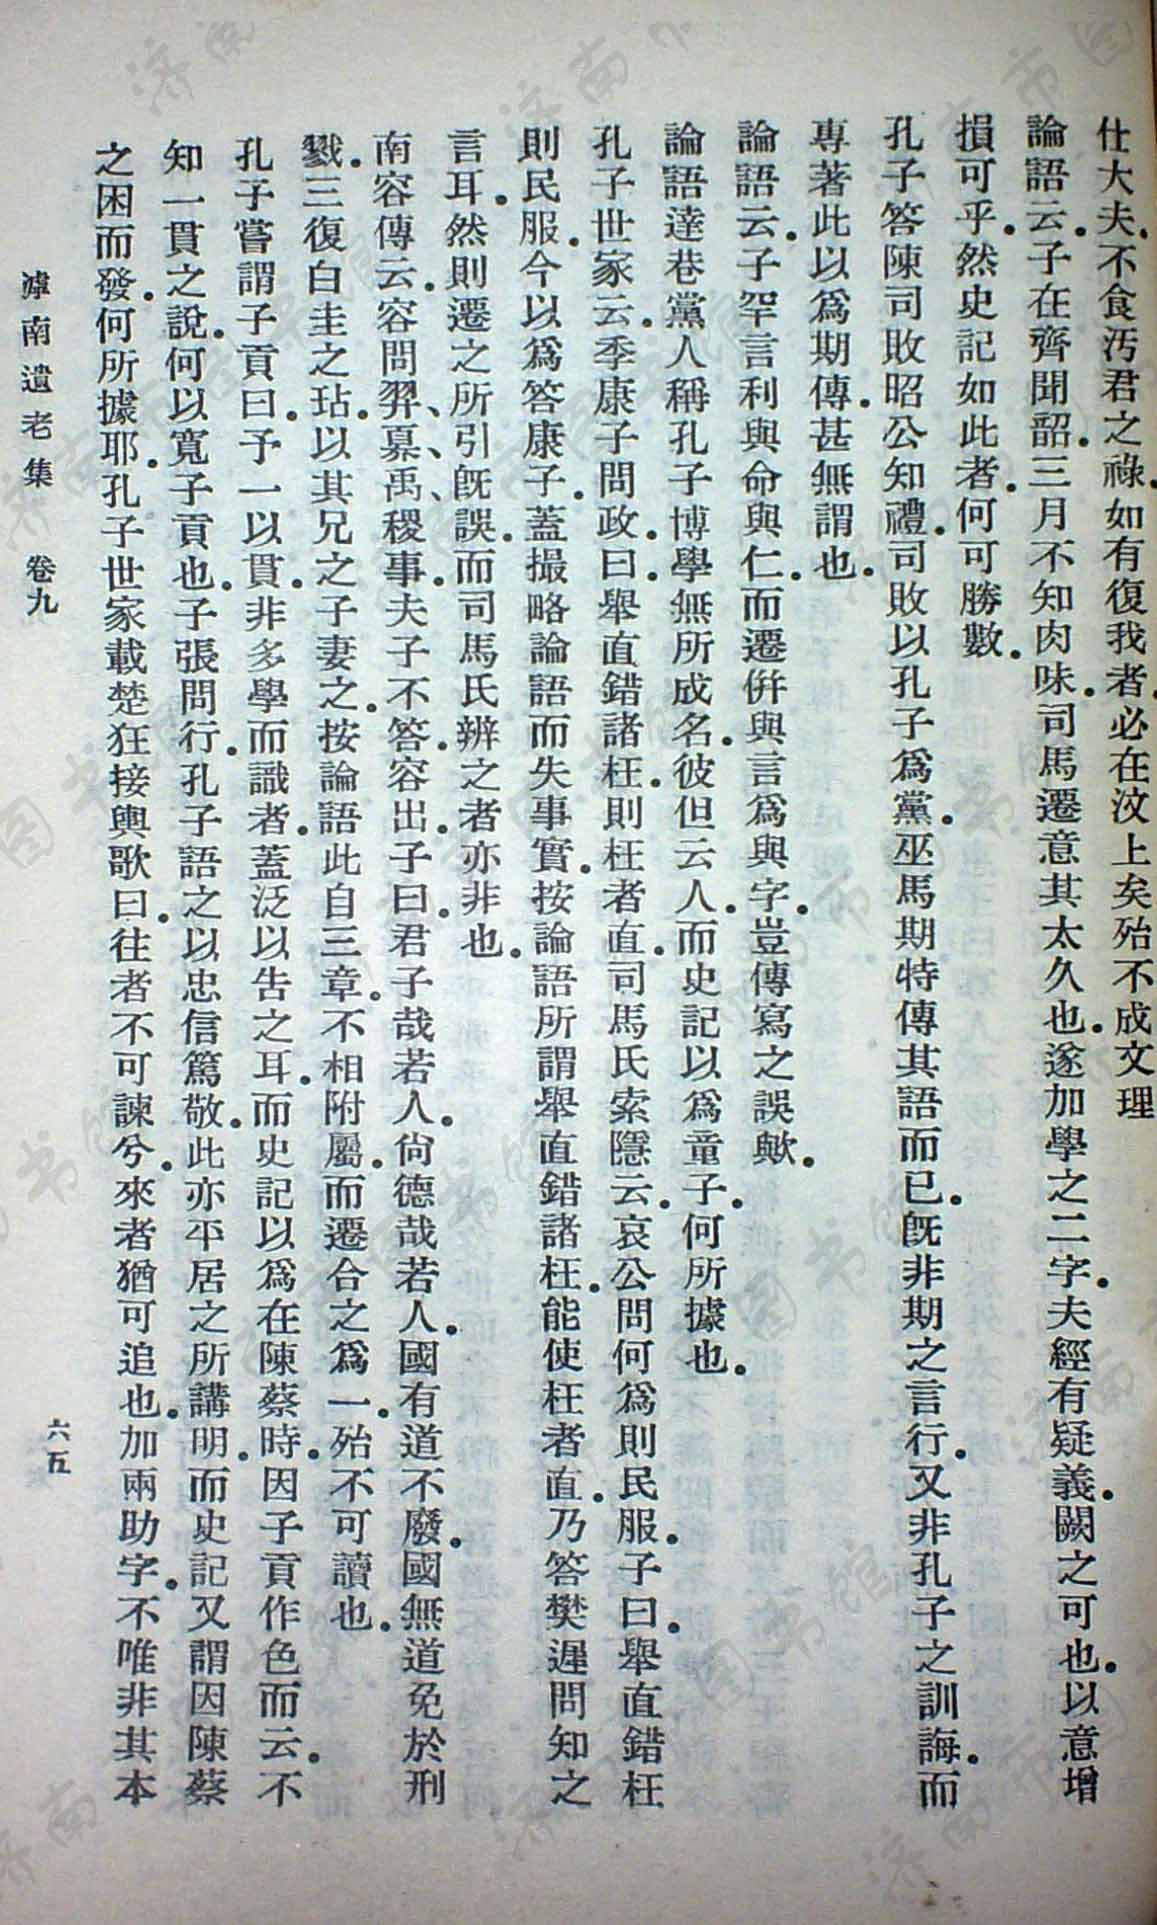 仕大夫、不食汚君之祿。如有復我者、必在汶上矣殆不成文理
論語云。子在齊聞韶。三月不知肉味。司馬遷意其太久也。遂加學之二字。夫經有疑義。闕之可也。以意增
損可乎。然史記如此者。何可勝數。
孔子答陳司敗昭公知禮。司敗以孔子爲黨。巫馬期特傳其語而已。旣非期之言行。又非孔子之訓誨。而
專著此以爲期傳。甚無謂也。
論語云。子罕言利與命與仁。而遷倂與言爲與字。豈傳寫之誤歟。
論語達巷黨人稱孔子博學無所成名。彼但云人。而史記以爲童子。何所據也。
孔子世家云。季康子問政。曰。舉直錯諸枉。則枉者直。司馬氏索隱云。哀公問何爲則民服。子曰。舉直錯枉
則民服。今以爲答康子。蓋撮略論語而失事實。按論語所謂舉直錯諸枉。能使枉者直。乃答樊遲問知之
言耳。然則遷之所引旣誤。而司馬氏辨之者亦非也。
南容傳云。容問羿、奡、禹、稷事。夫子不答。容出。子曰。君子哉若人。尙德哉若人。國有道不廢。國無道免於刑
戮。三復白圭之玷。以其兄之子妻之。按論語此自三章。不相附屬。而遷合之爲一。殆不可讀也。
孔子嘗謂子貢曰。予一以貫。非多學而識者。蓋泛以告之耳。而史記以爲在陳蔡時。因子貢作色而云。不
知一貫之說。何以寬子貢也。子張問行。孔子語之以忠信篤敬。此亦平居之所講明。而史記又謂因陳蔡
之困而發。何所據耶。孔子世家載楚狂接輿歌曰。往者不可諫兮。來者猶可追也。加兩助字。不唯非其本
滹南遺老集 卷九
六五